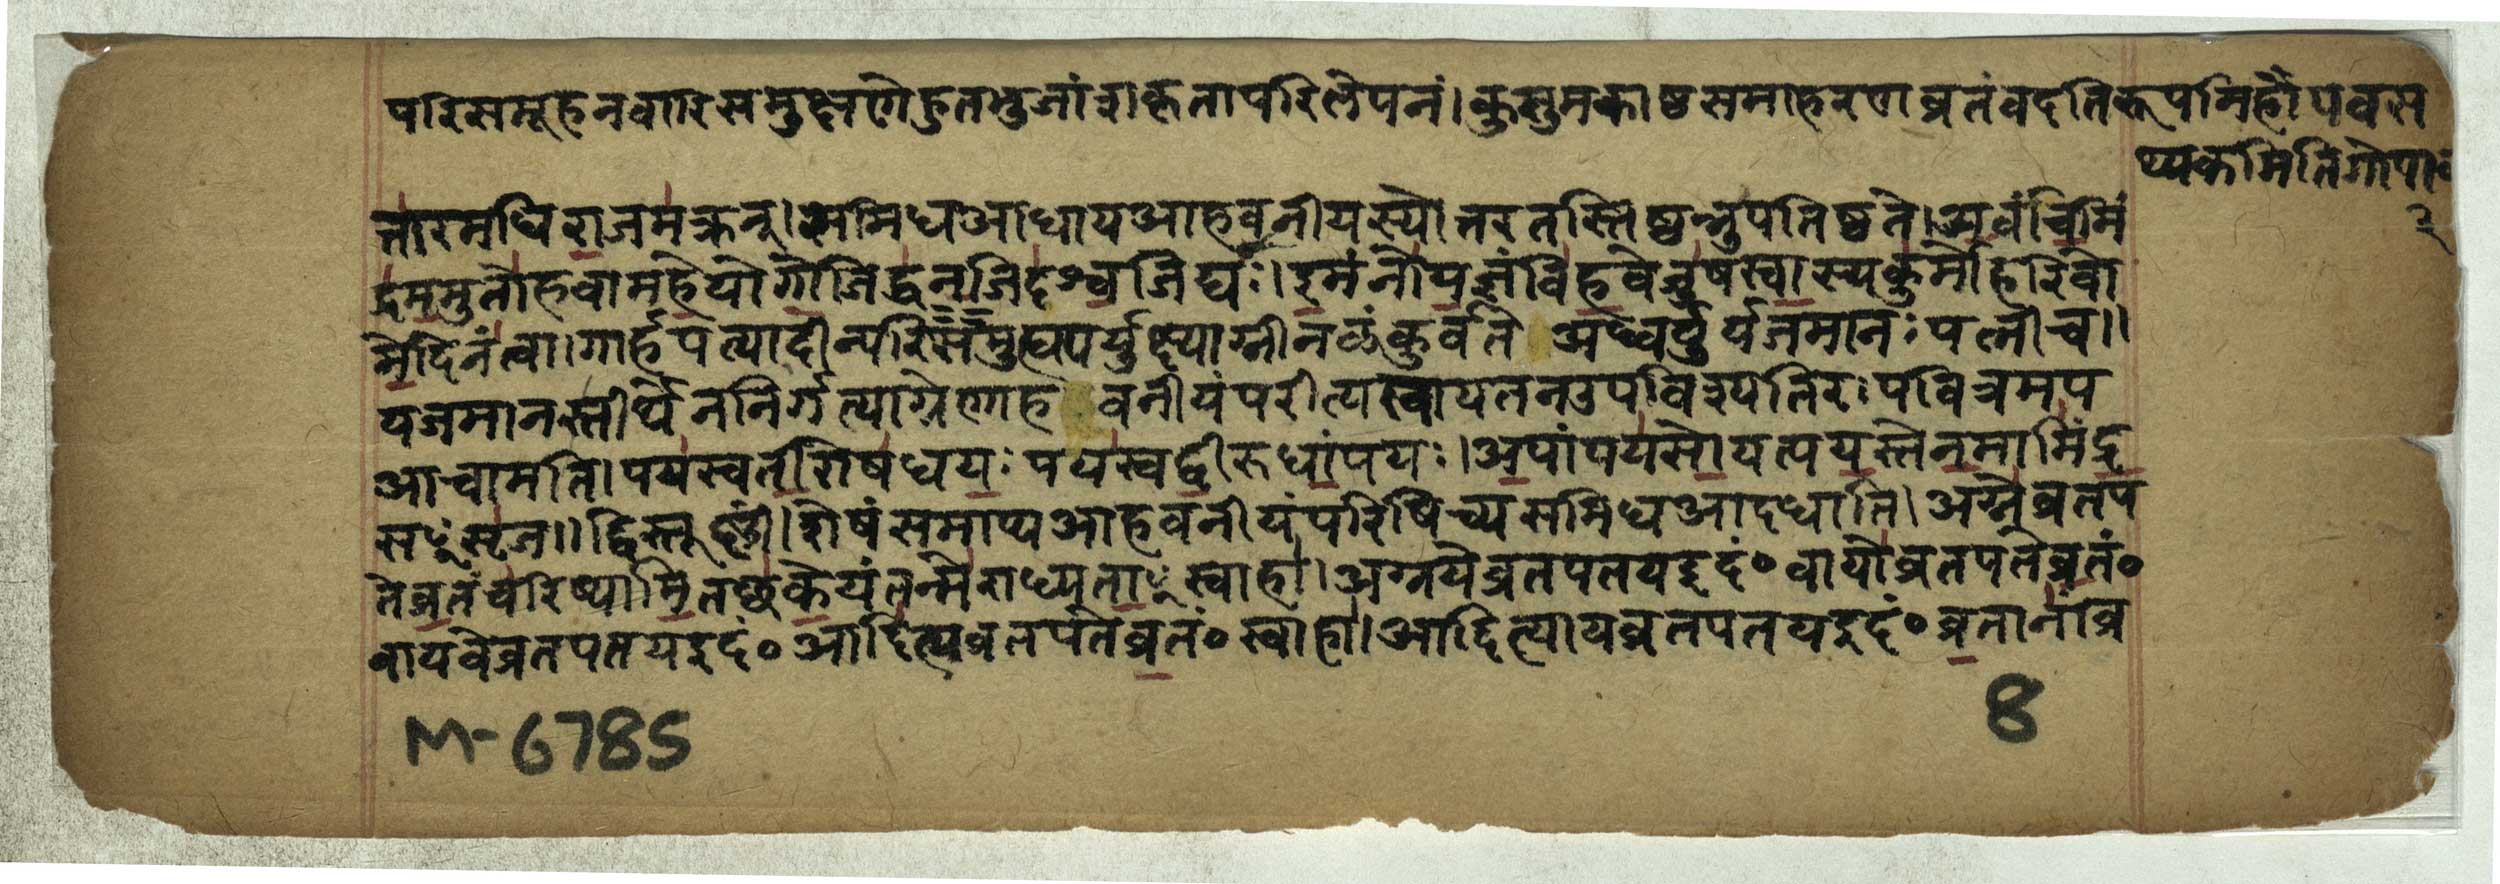 परिसमूहनवारिसमुक्षणेहुतभुजांशकृतापरिलेपनं।कुसुमकाष्ठसमाहरणव्रतंवदतिरूपमिहौपवस
थ्यकमितिगोपाल
२
त्तारमधिराजमक्रन्।समिधआधायआहवनीयस्योत्तरतस्तिष्ठन्नुपतिष्ठते।अर्वांचमिं
द्रममुतोहवामहेयोगोजिद्धनजिदश्वजिद्यः।इमंनोयज्ञंविहवेजुषस्वास्यकुर्मोहरिवो
मेदिनंत्वा।गार्हपत्यादीन्परिसमुह्यपर्युक्ष्याग्नीनळंकुर्वते अध्वर्युर्यजमानः पत्नीच॥
यजमानस्तीर्थेननिर्गत्याग्रेणाह वनीयंपरीत्यस्वायतनउपविश्यतिरःपवित्रमप
आचामति।पयस्वतीरोषधयः पयस्वद्वीरुधांपयः।अपांपयसोयत्पयस्तेनमामिंद्र
सꣳसृज॥द्विस्तूष्णीं।शेषंसमाप्यआहवनीयंपरिषिच्यसमिधआदधाति।अग्नेव्रतप
तेव्रतंचरिष्यामितच्छकेयंतन्मेराध्यताꣳस्वाहा।अग्नयेव्रतपतयइदं॰वायोव्रतपतेव्रतं॰
वायवेव्रतपतयइदं॰आदित्यव्रतपतेव्रतं॰स्वाहा।आदित्यायव्रतपतयइदं॰व्रतानांव्र
M-6785
8